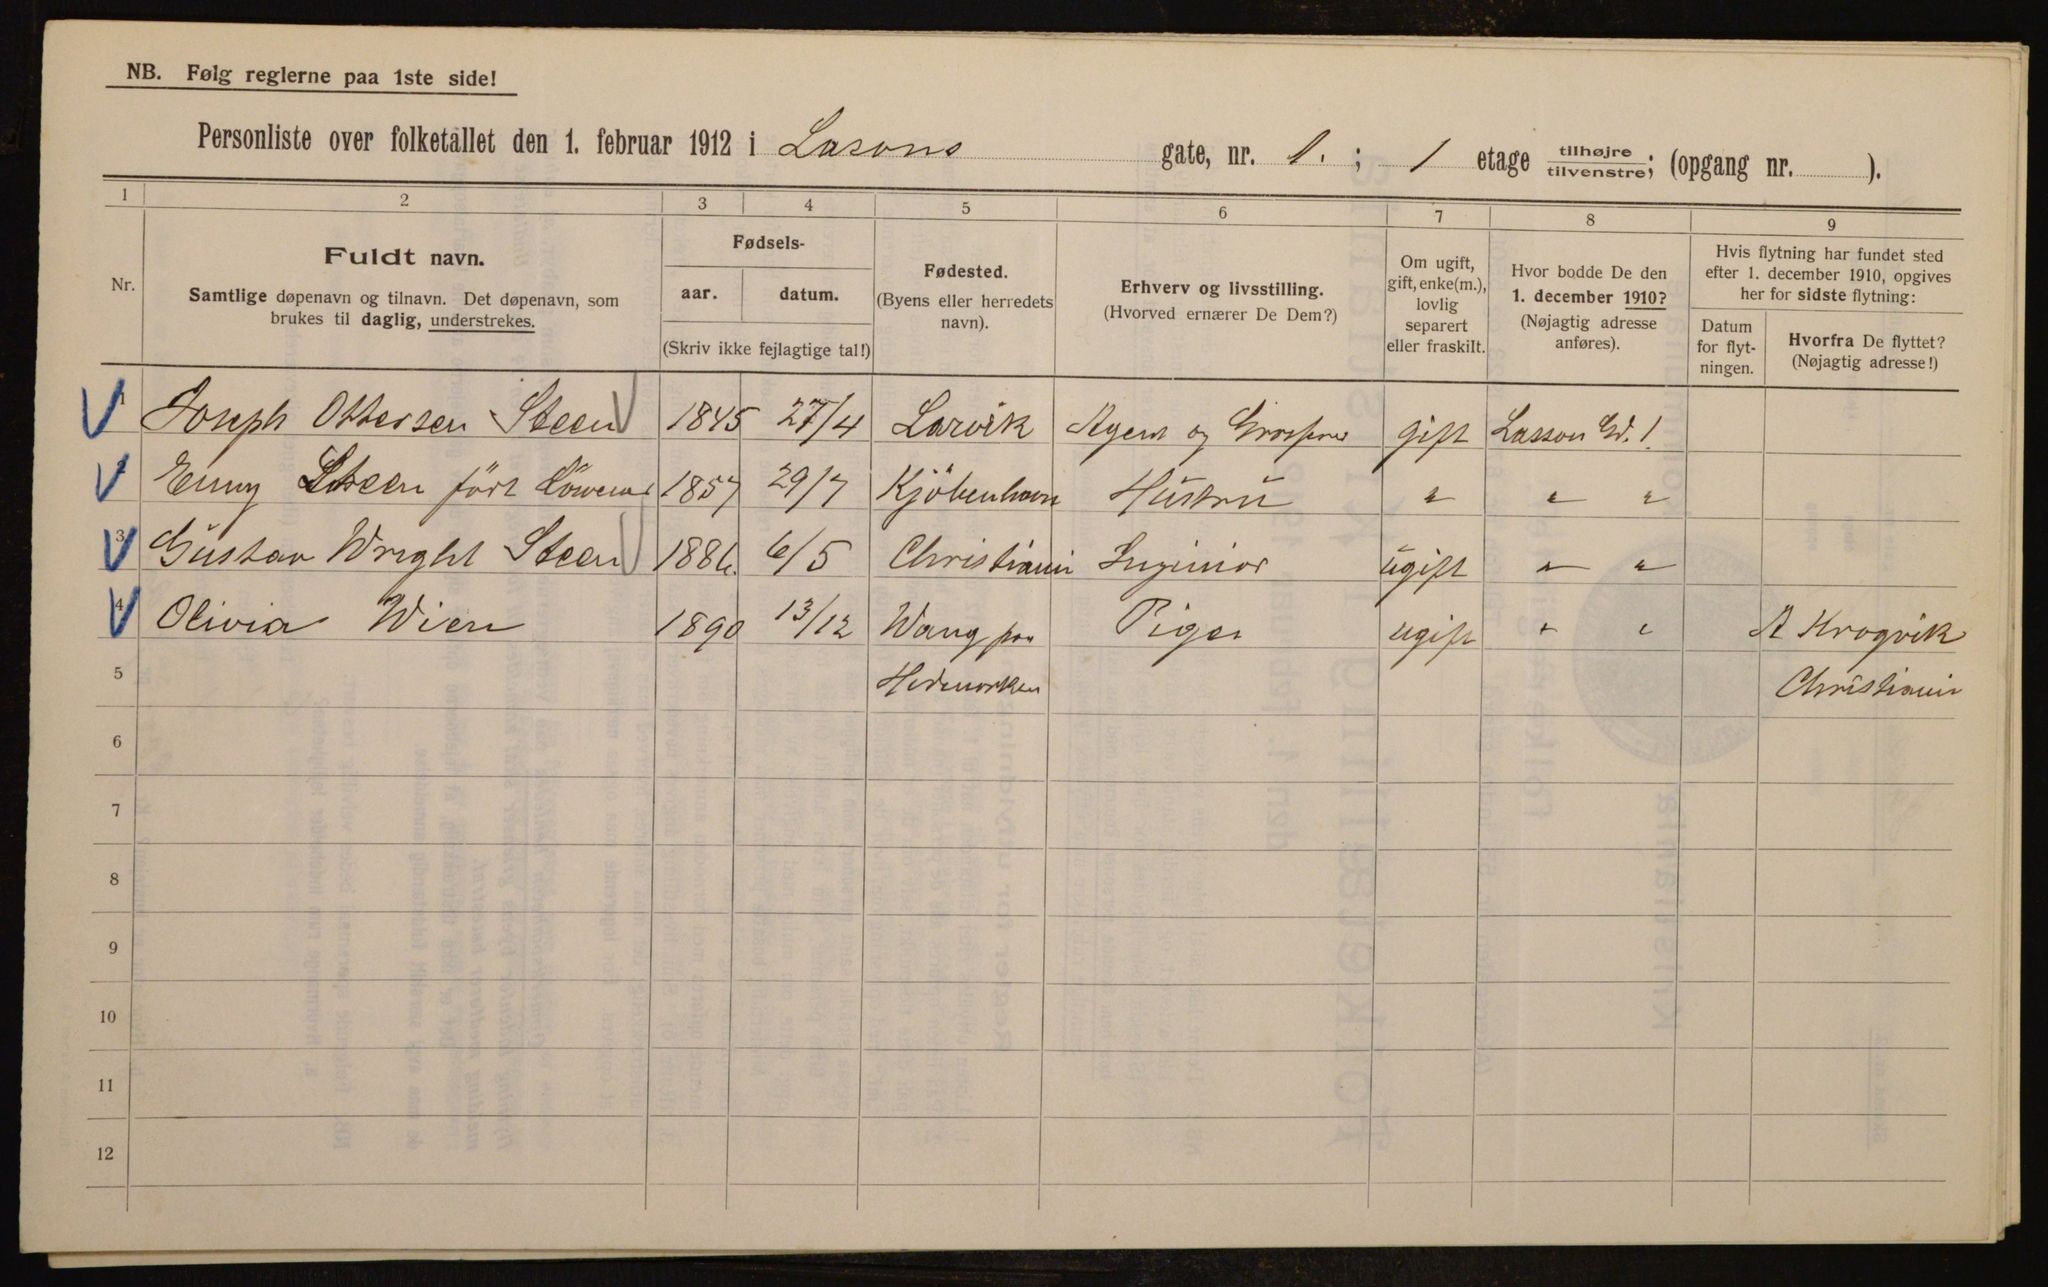 NB. Følg reglerne paa 1ste side!
Personliste over folketallet den 1. februar 1912 i Lasons gate, nr. 1. ; 1 etage tilhøjre tilvenstre; (opgang nr. ).
1 2 3 4 5 6 7 8 9
Nr.
Fuldt navn.
Samtlige døpenavn og tilnavn. Det døpenavn, som
brukes til daglig, understrekes.
Fødsels-
aar. datum.
(Skriv ikke fejlagtige tal!)
Fødested.
(Byens eller herredets
navn).
Erhverv og livsstilling.
(Hvorved ernærer De Dem?)
Om ugift,
gift, enke(m.),
lovlig
separert
eller fraskilt.
Hvor bodde De den
1. december 1910?
(Nøjagtig adresse
anføres).
Hvis flytning har fundet sted
efter 1. december 1910, opgives
her for sidste flytning:
Datum
for flyt-
ningen.
Hvorfra De flyttet?
(Nøjagtig adresse!)
1 Joseph Ottersen Steen 1845 27/4 Larvik Agent og gift Lasson Gd. 1
2 Steen født 1857 29/7 Kjöbenhavn Hustru " " "
3 Gustav Wright Steen 1886. 6/5 Christiania Ingeniør ugift " "
4 Olivia Wien 1890 13/12 Wang paa Pige ugift " " A Krogvik
5 Hedemarken Christiania
6
7
8
9
10
11
12